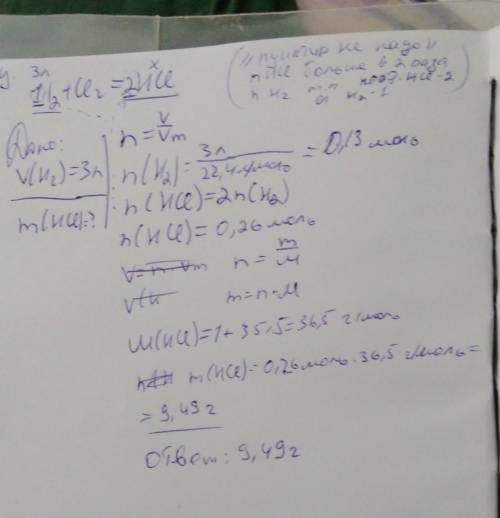 3л x
H₂+Cl₂=2HCl
(,,пунктир не надо"
n HCl больше в 2 раза
n H₂ т.п. коэф. HCl-2
а H₂-1
Дано:
V(H₂)=3л
m(HCl)=?
n=V/Vm
n(H₂)=3л/22,4л/моль=0,13 моль
n(HCl)=2n(H₂)
n(HCl)=0,26 моль
V=n·Vm n=m/M
V(H m=n·M
M(HCl)=1+35,5=36,5 г/моль
m(HCl)=0,26моль·36,5 г/моль=
=9,49г
Ответ: 9,49г